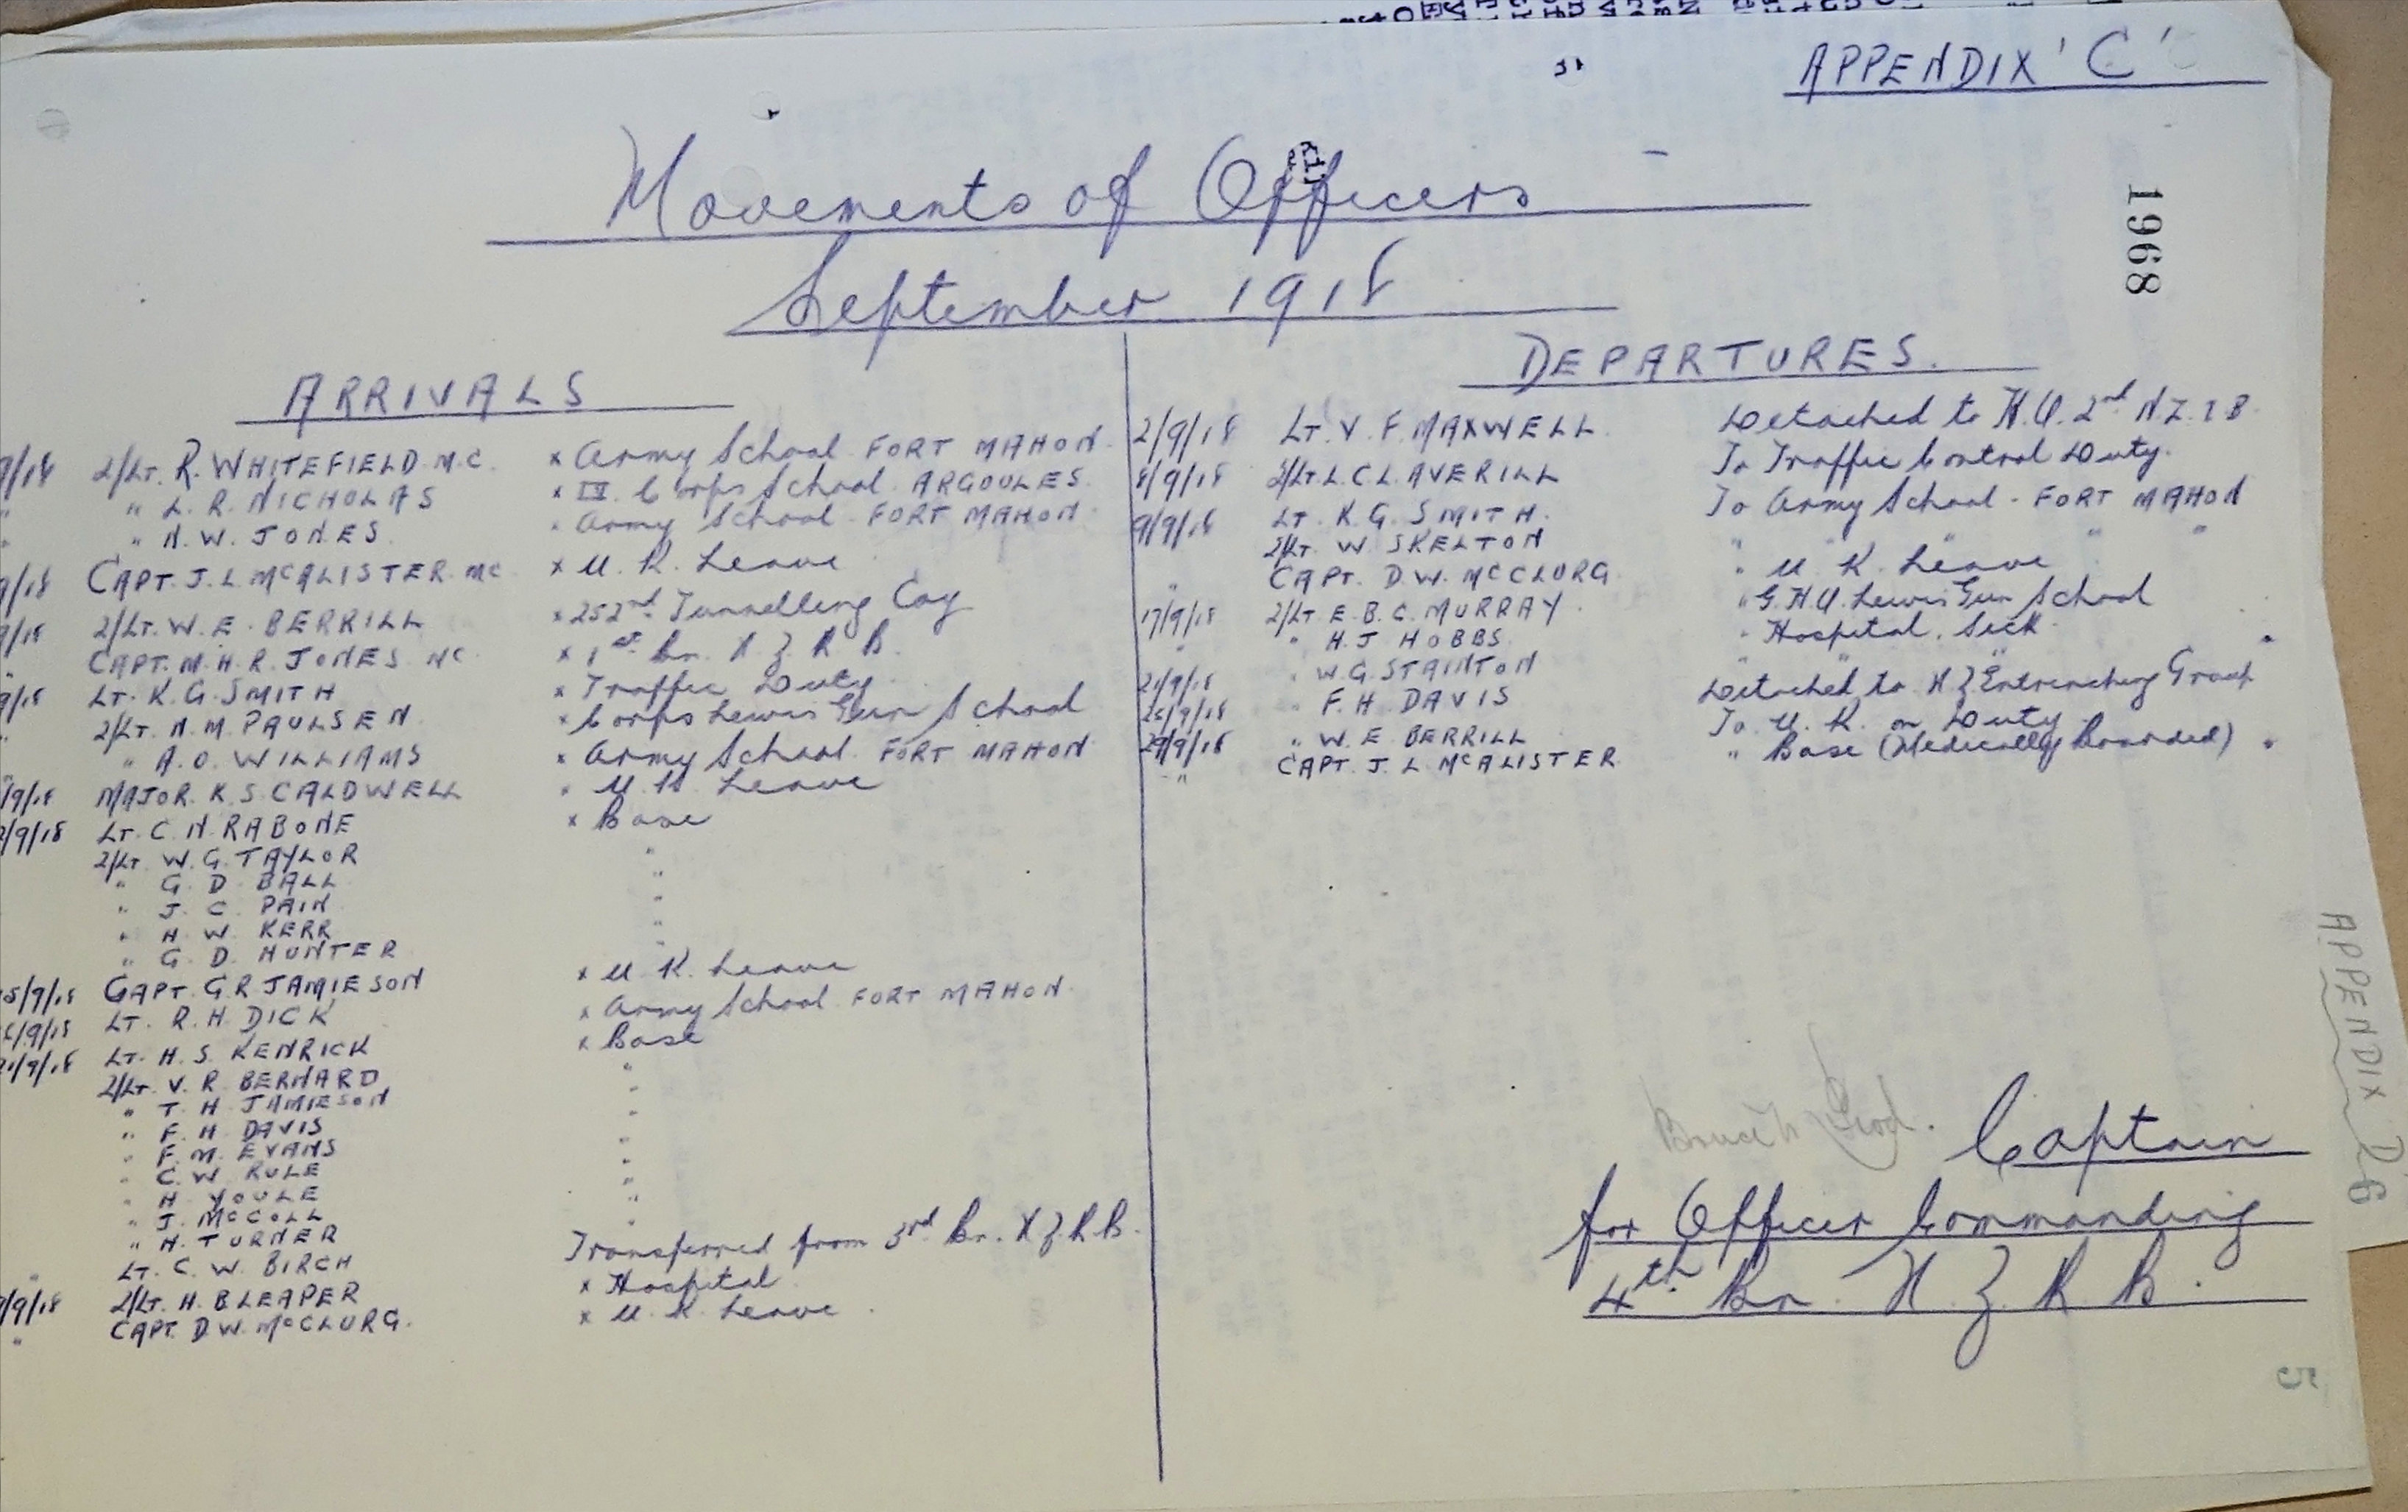 APPENDIX 'C'
1968
Movements of Officers
September 1918
ARRIVALS
9/18 2/Lt. R. WHITEFIELD M.C. x Army School FORT MAHON.
" " L. R. NICHOLAS x IV. Corps School ARGOULES.
" " N. W. JONES. " Army School - FORT MAHON.
9/18 CAPT. J. L. McALISTER. MC x U. K. Leave
9/18 2/Lt. W. E. BERRILL x 252nd Tunnelling Coy
" CAPT. M. H. R. JONES MC. x 1st Bn. N Z R B.
9/18 Lt. K. G. SMITH x Traffic Duty.
" 2/Lt. N. M. PAULSEN. x Corps Lewis Gun School
" " A. O. WILLIAMS x Army School. FORT MAHON.
/9/18 MAJOR. K. S. CALDWELL x U. K. Leave
/9/18 Lt. C. N. RABONE x Base
2/Lt. W. G. TAYLOR "
" G. D. BALL "
" J. C. PAIN "
" H. W. KERR "
" G. D. HUNTER
5/9/18 CAPT. G. R JAMIESON x U. K. Leave
/9/18 LT. R. H. DICK x Army School FORT MAHON.
/9/18 Lt. H. S. KENRICK x Base
2/Lt. V. R. BERNARD "
" T. H JAMIESON "
" F. H. DAVIS "
" F. M. EVANS "
" C. W. RULE "
" H YOULE "
" J. McCOLL "
" H. TURNER "
" LT. C. W. BIRCH Transferred from 3rd. Bn. N Z R B.
/9/18 2/Lt. H. BLEAPER x Hospital
" CAPT. D. W. McCLURG. x U. K. Leave.
DEPARTURES.
2/9/18 Lt. V. F. MAXWELL Detached to H.Q. 2nd N Z. I B.
8/9/18 2/Lt. L. C. L. AVERILL To Traffic Control Duty.
9/9/18 Lt. K. G. SMITH. To Army School - FORT MAHON
2/Lt. W. SKELTON " " " " "
" CAPT. D. W. McCLURG. " U K. Leave
17/9/18 2/Lt E. B. C. MURRAY. " G. H. Q. Lewis Gun School
" " H. J HOBBS. " Hospital. Sick.
21/9/18 " W. G. STAINTON " " "
/9/18 " F. H. DAVIS Detached to N Z Entrenching Group
29/9/18 " W. E BERRILL To U. K. on Duty
" CAPT. J. L McALISTER. " Base (Medically Boarded)
Captain
for Officer Commanding
4th Bn. N. Z R B.
APPENDIX D6
5